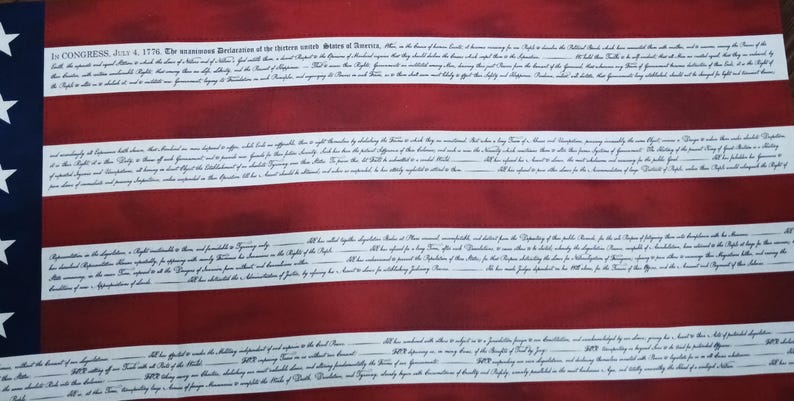 IN CONGRESS, JULY 4, 1776. The unanimous Declaration of the thirteen united States of America, When, in the Course of human Events, it becomes necessary for one People to dissolve the Political Bands which have connected them with another, and to assume, among the Powers of the
Earth, the separate and equal Station to which the Laws of Nature and of Nature's God entitle them, a decent Respect to the Opinions of Mankind requires that they should declare the Causes which impel them to the Separation. We hold these Truths to be self-evident, that all Men are created equal, that they are endowed, by
their Creator, with certain unalienable Rights, that among these are Life, Liberty, and the Pursuit of Happiness. That to secure these Rights, Governments are instituted among Men, deriving their just Powers from the Consent of the Governed, that whenever any Form of Government becomes destructive of these Ends, it is the Right of
the People to alter or to abolish it, and to institute new Government, laying its Foundation on such Principles, and organizing its Powers in such Form, as to them shall seem most likely to effect their Safety and Happiness. Prudence, indeed, will dictate, that Governments long established, should not be changed for light and transient Causes;
and accordingly all Experience hath shewn, that Mankind are more disposed to suffer, while Evils are sufferable, than to right themselves by abolishing the Forms to which they are accustomed. But when a long Train of Abuses and Usurpations, pursuing invariably the same Object, evinces a Design to reduce them under absolute Despotism,
it is their Right, it is their Duty, to throw off such Government, and to provide new Guards for their future Security. Such has been the patient Sufferance of these Colonies; and such is now the Necessity which constrains them to alter their former Systems of Government. The History of the present King of Great Britain is a History
of repeated Injuries and Usurpations, all having in direct Object the Establishment of an absolute Tyranny over these States. To prove this, let Facts be submitted to a candid World. HE has refused his Assent to Laws, the most wholesome and necessary for the public Good. HE has forbidden his Governors to
pass Laws of immediate and pressing Importance, unless suspended in their Operation till his Assent should be obtained; and when so suspended, he has utterly neglected to attend to them. HE has refused to pass other Laws for the Accommodation of large Districts of People, unless those People would relinquish the Right of
Representation in the Legislature, a Right inestimable to them, and formidable to Tyrants only. HE has called together Legislative Bodies at Places unusual, uncomfortable, and distant from the Depository of their public Records, for the sole Purpose of fatiguing them into Compliance with his Measures.
has dissolved Representative Houses repeatedly, for opposing with manly Firmness his Invasions on the Rights of the People. HE has refused for a long Time, after such Dissolutions, to cause others to be elected; whereby the Legislative Powers, incapable of Annihilation, have returned to the People at large for their exercise;
State remaining, in the mean Time, exposed to all the Dangers of Invasion from without, and Convulsions within. HE has endeavoured to prevent the Population of these States; for that Purpose obstructing the Laws for Naturalization of Foreigners; refusing to pass others to encourage their Migrations hither, and raising the
Conditions of new Appropriations of Lands. HE has obstructed the Administration of Justice, by refusing his Assent to Laws for establishing Judiciary Powers. HE has made Judges dependent on his Will alone, for the Tenure of their Offices, and the Amount and Payment of their Salaries.
without the Consent of our Legislatures. HE has affected to render the Military independent of and superior to the Civil Power. HE has combined with others to subject us to a Jurisdiction foreign to our Constitution, and unacknowledged by our Laws; giving his Assent to their Acts of pretended Legislation:
these States: FOR cutting off our Trade with all Parts of the World: FOR imposing Taxes on us without our Consent: FOR depriving us, in many Cases, of the Benefits of Trial by Jury: FOR transporting us beyond Seas to be tried for pretended Offences:
the same absolute Rule into these Colonies: FOR taking away our Charters, abolishing our most valuable Laws, and altering fundamentally the Forms of our Governments: FOR suspending our own Legislatures, and declaring themselves invested with Power to legislate for us in all Cases whatsoever.
HE is, at this Time, transporting large Armies of foreign Mercenaries to complete the Works of Death, Desolation, and Tyranny, already begun with Circumstances of Cruelty and Perfidy, scarcely paralleled in the most barbarous Ages, and totally unworthy the Head of a civilized Nation.